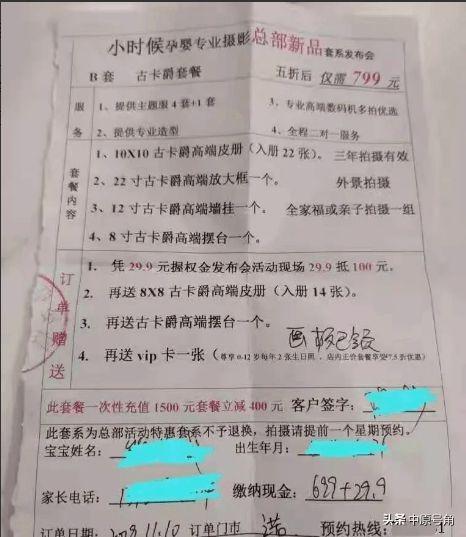 小时候孕婴专业摄影总部新品套系发布会
B 套 古卡爵套餐 五折后 仅需 799 元
服务
1、提供主题服 4 套+1 套 3、专业高端数码机多拍优选
2、提供专业造型 4、全程二对一服务
套餐内容
1、10X10 古卡爵高端皮册（入册 22 张）。 三年拍摄有效
2、22 寸古卡爵高端放大框一个。 外景拍摄
3、12 寸古卡爵高端墙挂一个。 全家福或亲子拍摄一组
4、8 寸古卡爵高端摆台一个。
订单赠送
1. 凭 29.9 元握权金发布会活动现场 29.9 抵 100 元。
2. 再送 8X8 古卡爵高端皮册（入册 14 张）。
3. 再送古卡爵高端摆台一个。
4. 再送 vip 卡一张（尊享 0-12 岁每年 2 张生日照，店内正价套餐享受 7.5 折优惠）
此套餐一次性充值 1500 元套餐立减 400 元 客户签字：
此套系为总部活动特惠套系不予退换，拍摄请提前一个星期预约。
宝宝姓名： 出生年月：
家长电话： 缴纳现金：699+29.9
订单日期： 订单门市 预约热线：
头条 @中原号角